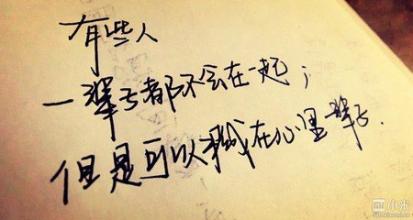 有些人
一辈子都不会在一起;
但是可以藏在心里一辈子.